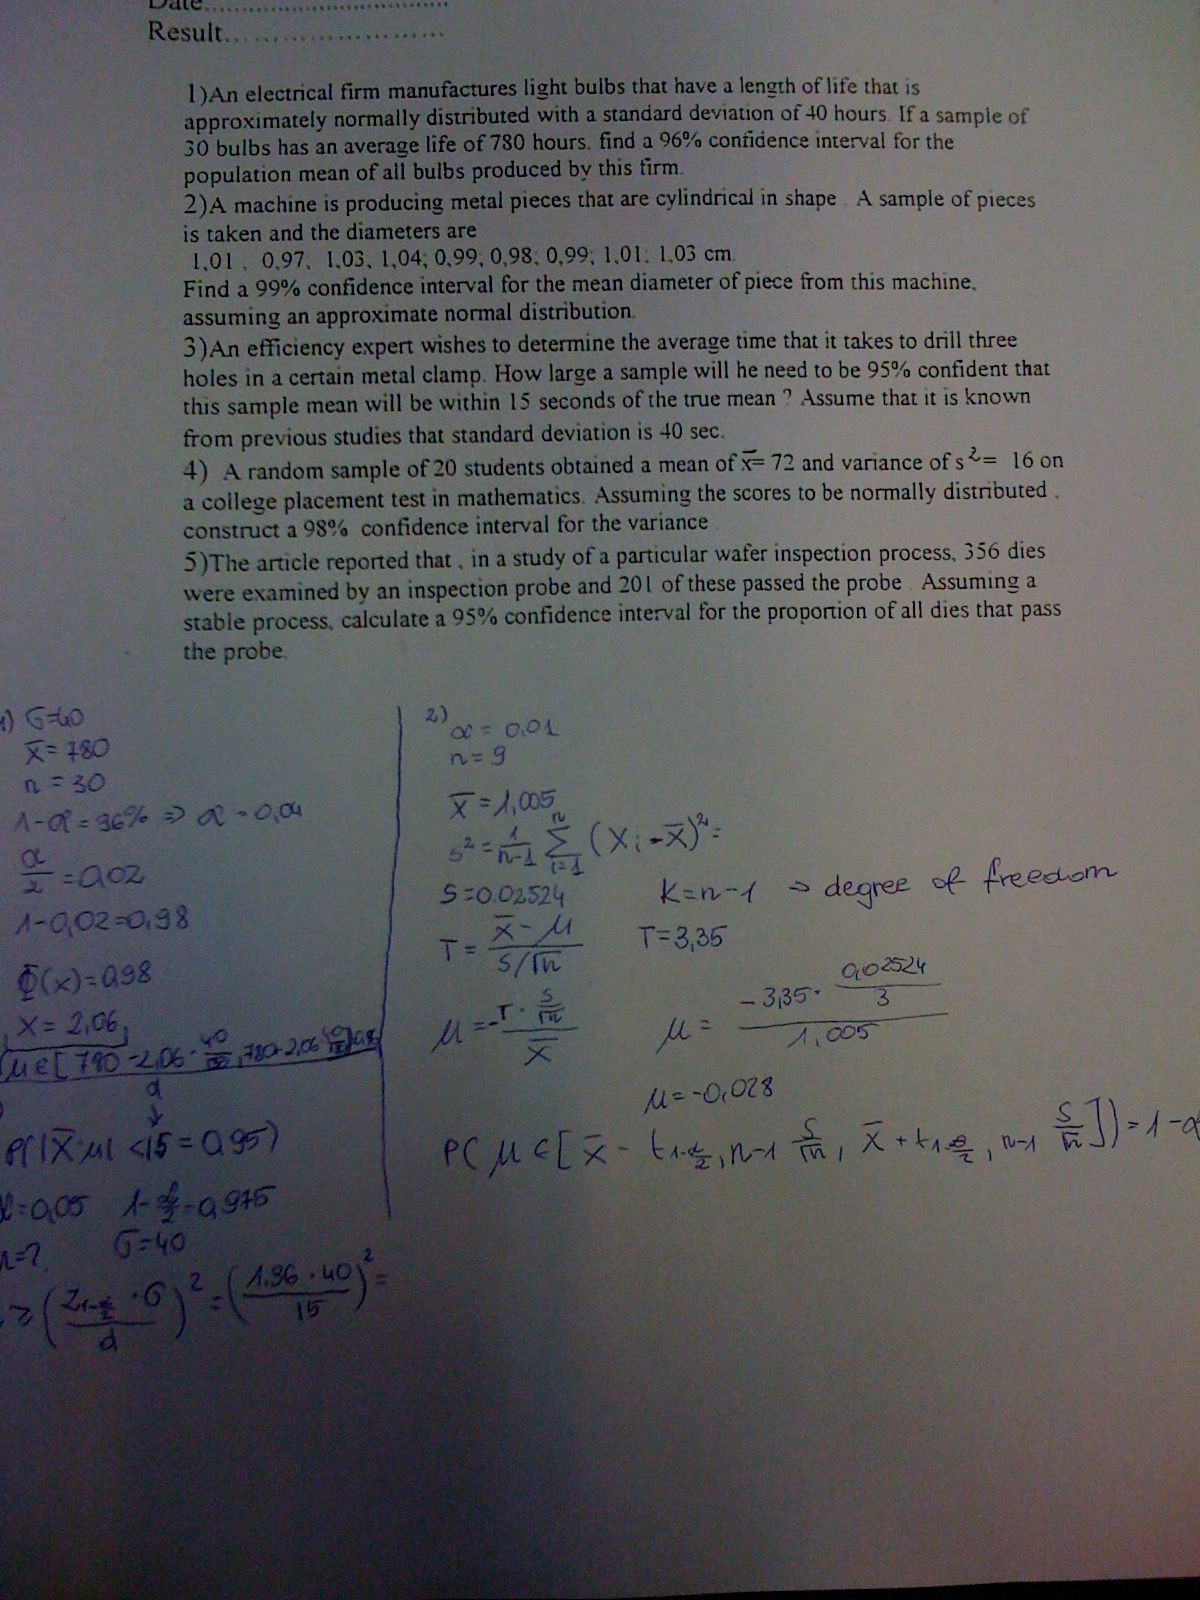 Date..............................
Result..........................
1)An electrical firm manufactures light bulbs that have a length of life that is
approximately normally distributed with a standard deviation of 40 hours. If a sample of
30 bulbs has an average life of 780 hours, find a 96% confidence interval for the
population mean of all bulbs produced by this firm.
2)A machine is producing metal pieces that are cylindrical in shape . A sample of pieces
is taken and the diameters are
1,01 , 0,97; 1,03, 1,04; 0,99; 0,98; 0,99; 1,01; 1,03 cm.
Find a 99% confidence interval for the mean diameter of piece from this machine,
assuming an approximate normal distribution.
3)An efficiency expert wishes to determine the average time that it takes to drill three
holes in a certain metal clamp. How large a sample will he need to be 95% confident that
this sample mean will be within 15 seconds of the true mean ? Assume that it is known
from previous studies that standard deviation is 40 sec.
4) A random sample of 20 students obtained a mean of x̅= 72 and variance of s²= 16 on
a college placement test in mathematics. Assuming the scores to be normally distributed ,
construct a 98% confidence interval for the variance .
5)The article reported that , in a study of a particular wafer inspection process, 356 dies
were examined by an inspection probe and 201 of these passed the probe . Assuming a
stable process, calculate a 95% confidence interval for the proportion of all dies that pass
the probe.
1) σ=40
x̅ = 780
n = 30
1-α = 96% => α = 0,04
α/2 = 0,02
1-0,02=0,98
Φ(x)=0,98
x = 2,06
μ∈[780-2,06·40/√30, 780+2,06
d
↓
P(|X̅-μ| <15 = 0,95)
α=0,05 1-α/2=0,975
n=? σ=40
≥ (z₁₋α/₂ · σ / d)² = (1.96 · 40 / 15)² =
2)
α = 0,01
n = 9
x̅ = 1,005
s² = 1/(n-1) Σ(i=1, n) (Xi - X̅)² =
S=0.02524 K=n-1 => degree of freedom
T = (X̅ - μ)/(S/√n) T=3,35
μ = (-T · S/√n)/X̅ μ = (-3,35 · 0,02524/3)/1,005
μ=-0,028
P( μ ∈ [ X̅ - t₁₋α/₂, n-1 S/√n, X̅ + t₁₋α/₂, n-1 S/√n ]) = 1-α